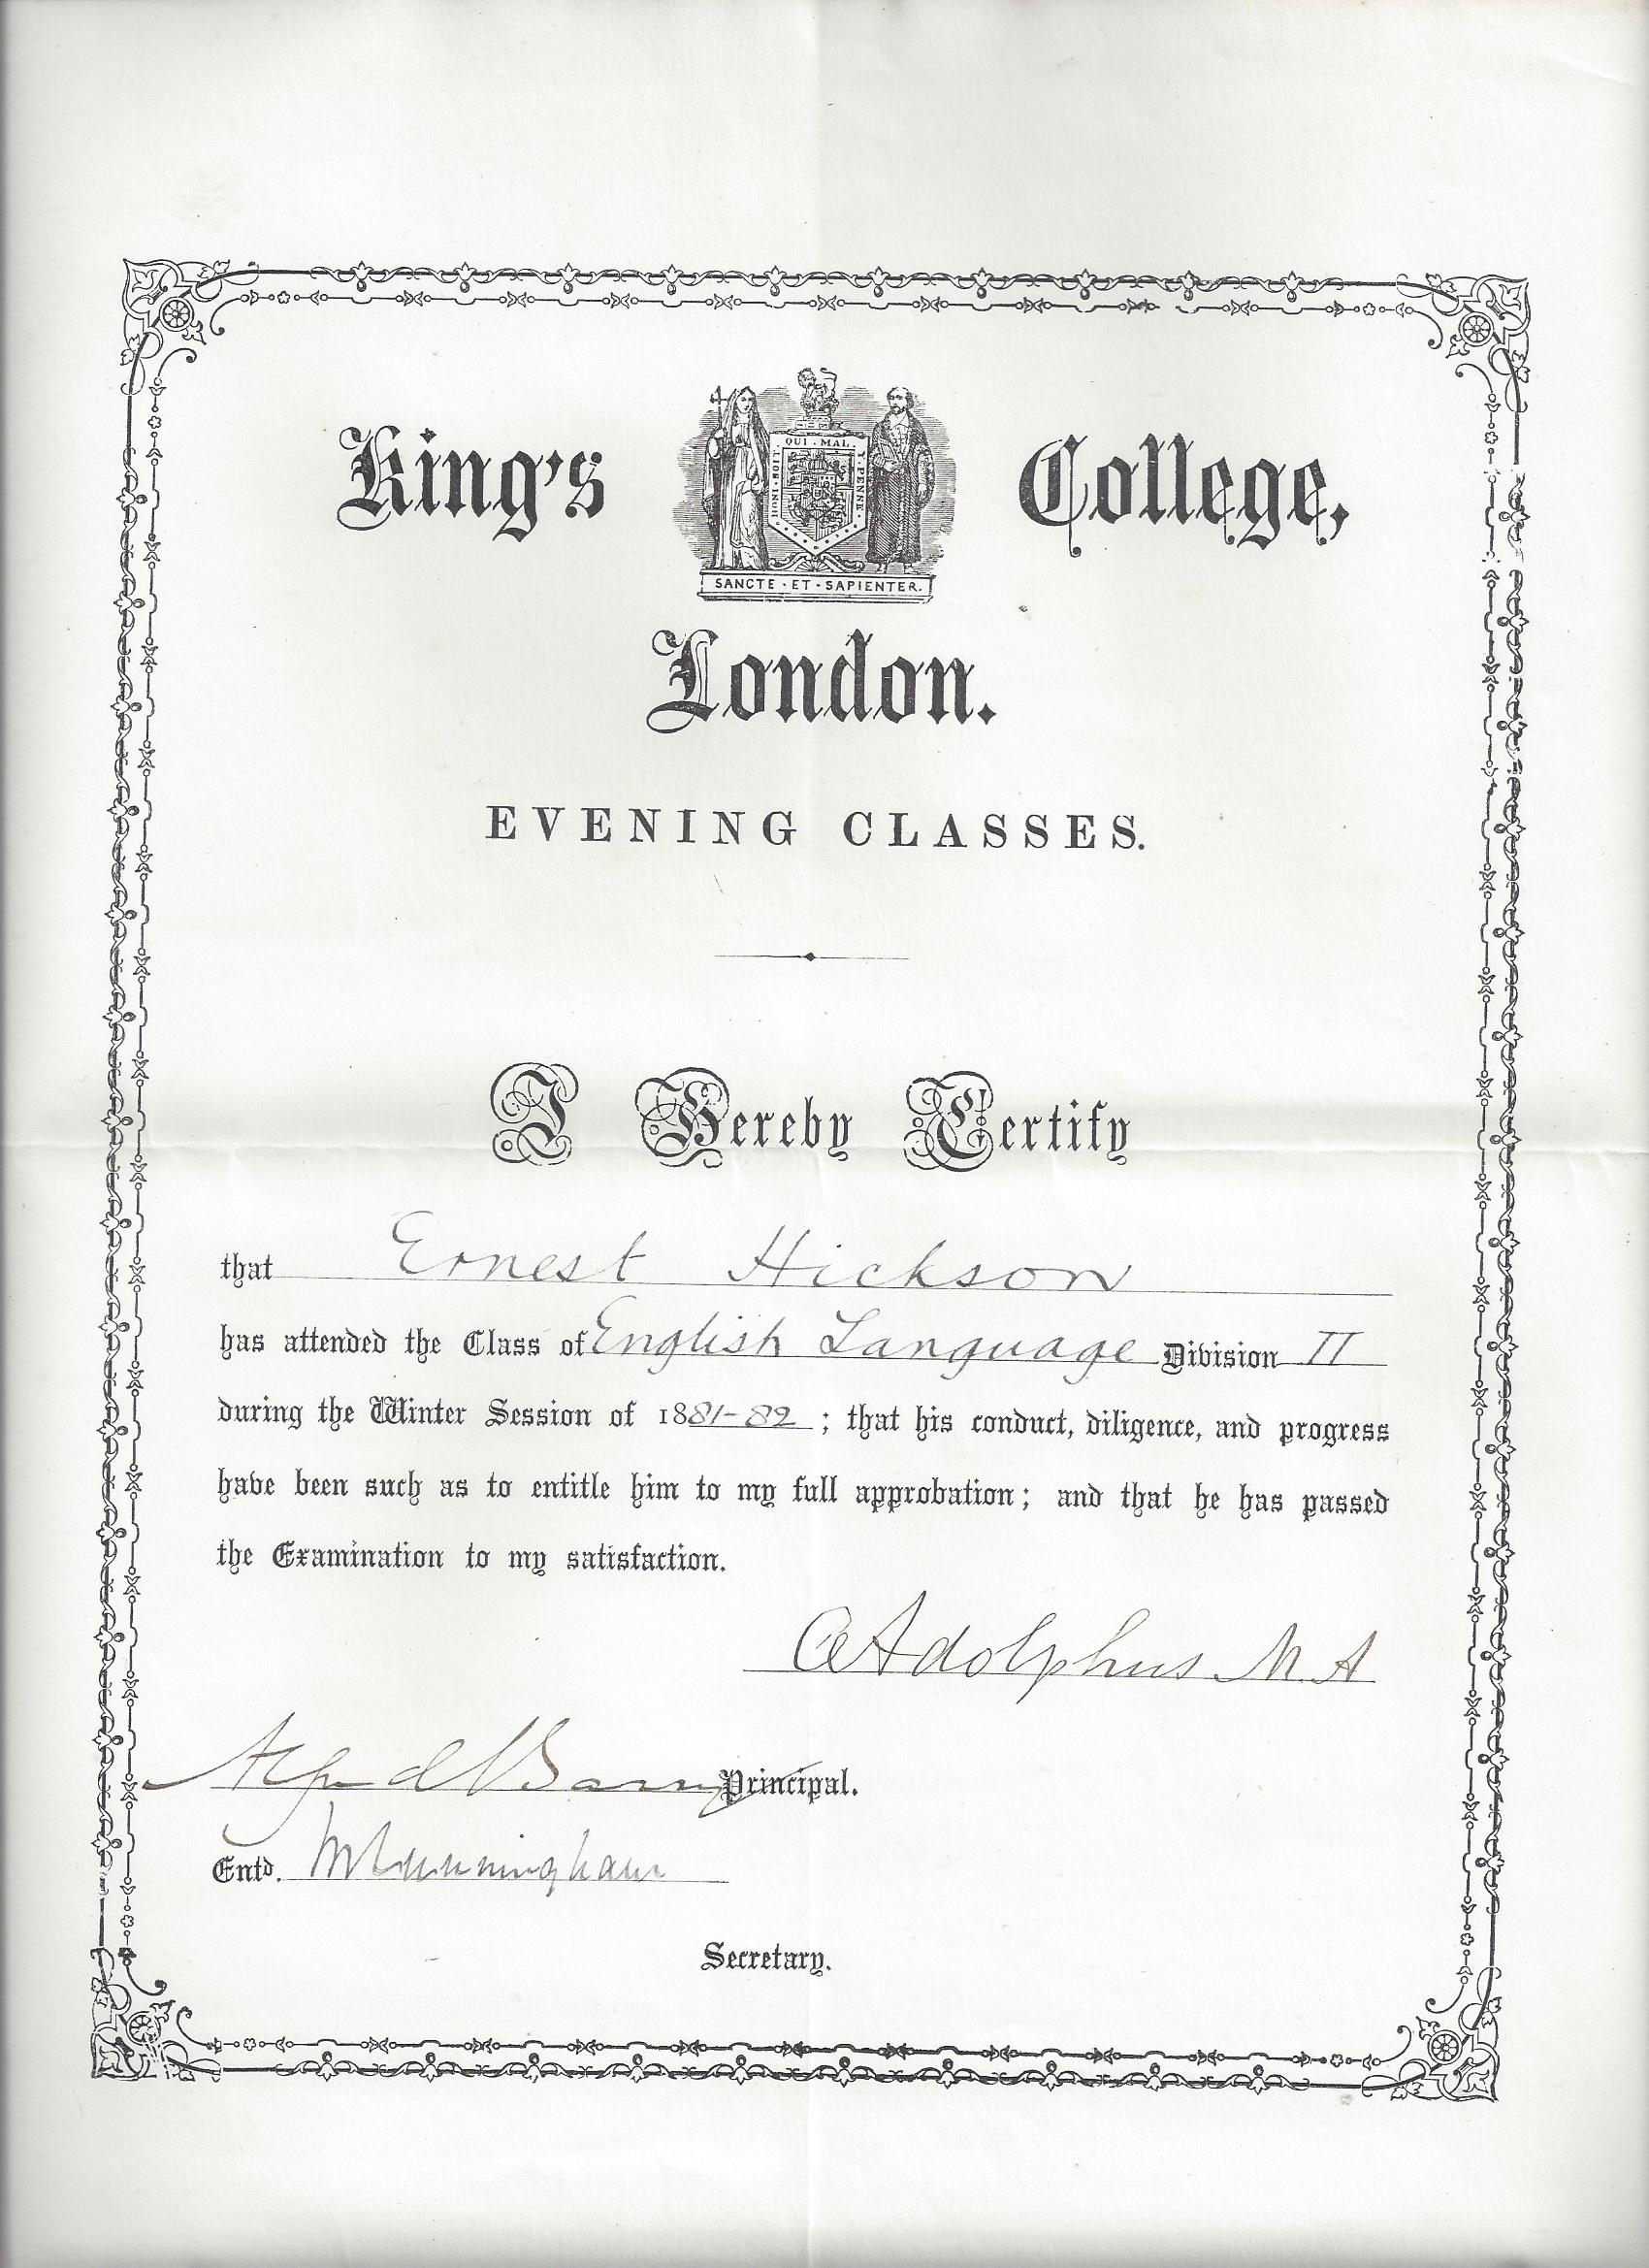 King's College,
HONI · SOIT · QUI · MAL · Y · PENSE ·
SANCTE · ET · SAPIENTER.
London.
EVENING CLASSES.
I Hereby Certify
that Ernest Hickson
has attended the Class of English Language Division II
during the Winter Session of 1881-82 ; that his conduct, diligence, and progress
have been such as to entitle him to my full approbation; and that he has passed
the Examination to my satisfaction.
Adolphus M.A
Alfred Barry Principal.
Entd. Cunningham
Secretary.